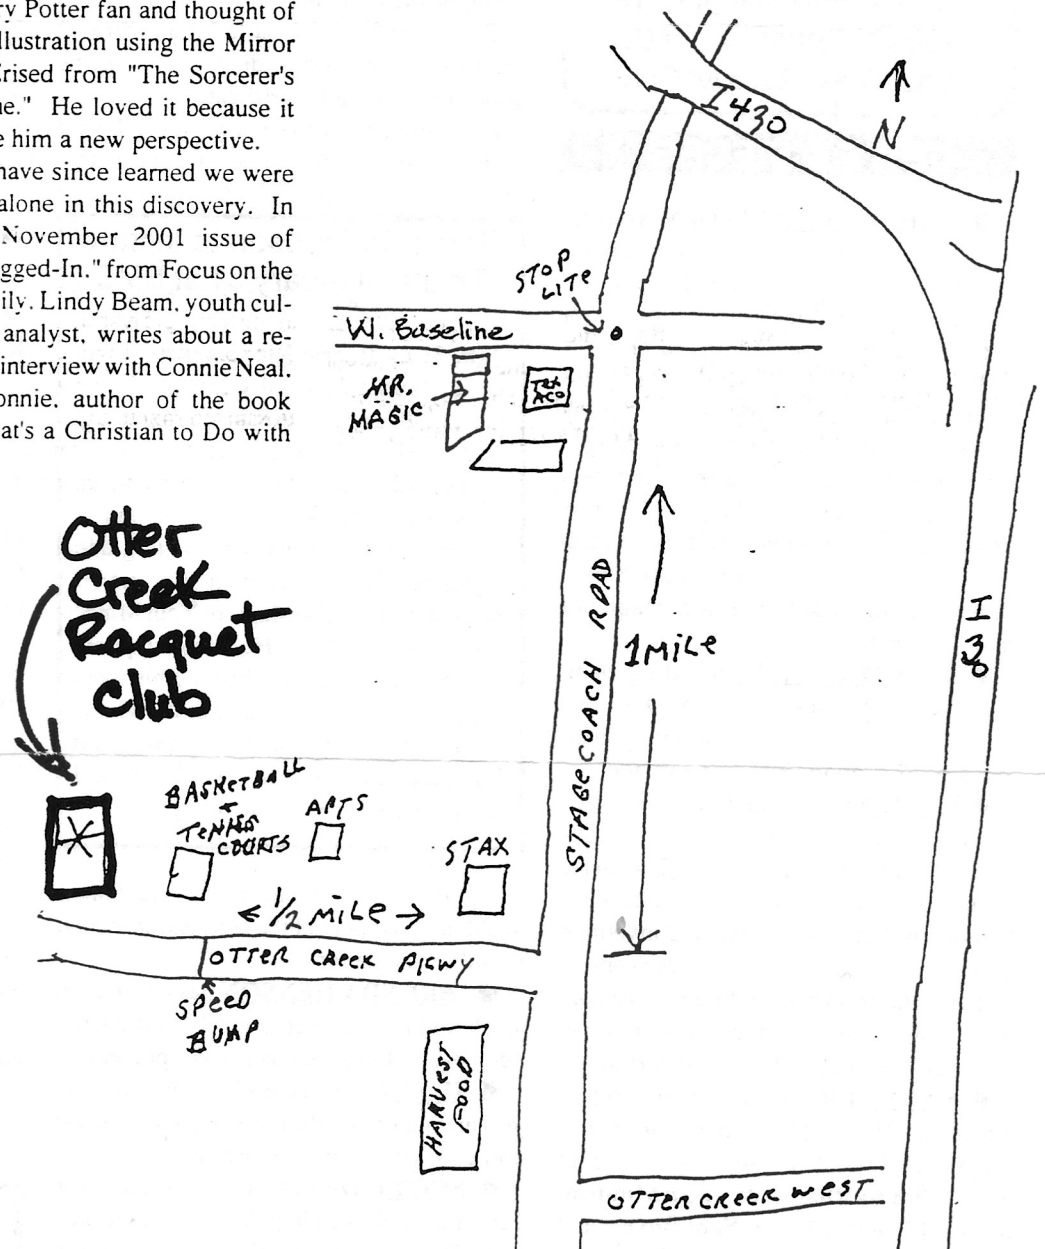 ry Potter fan and thought of
llustration using the Mirror
Erised from "The Sorcerer's
ne." He loved it because it
e him a new perspective.
have since learned we were
alone in this discovery. In
November 2001 issue of
gged-In," from Focus on the
ily. Lindy Beam, youth cul-
analyst, writes about a re-
interview with Connie Neal.
onnie, author of the book
at's a Christian to Do with
I 430
N
STOP
LITE
W. Baseline
MR.
MAGIC
TEX
ACO
STAGECOACH ROAD
1 MILE
I
30
Otter
Creek
Racquet
Club
BASKETBALL
+
TENNIS
COURTS
APTS
STAX
1/2 MILE
OTTER CREEK PKWY
SPEED
BUMP
HARVEST
FOOD
OTTER CREEK WEST